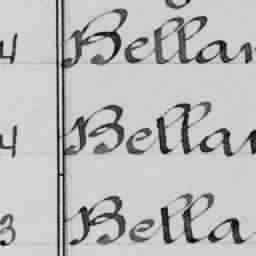 4 Bellar
4 Bellar
3 Bella